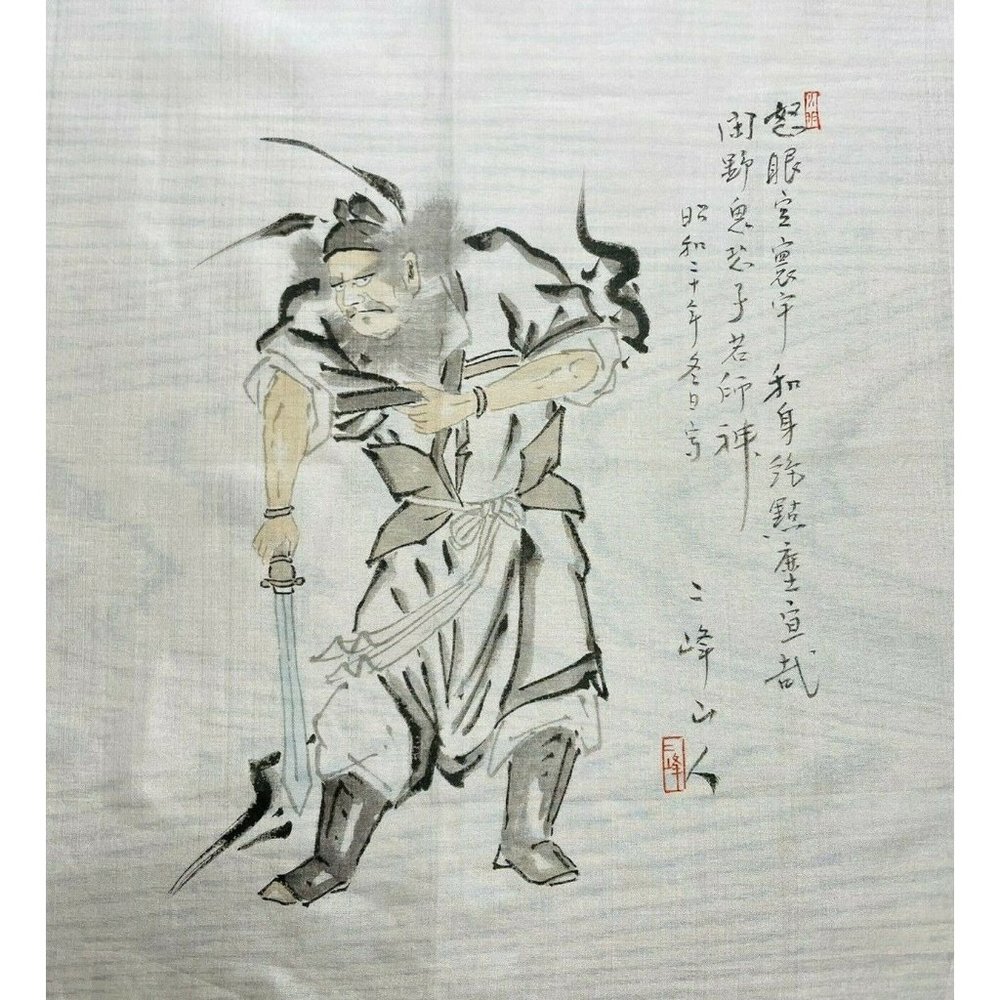 怒眼寰宇和身絶點塵哉
野鬼子若师神
昭和二十年冬日写
二峰山人